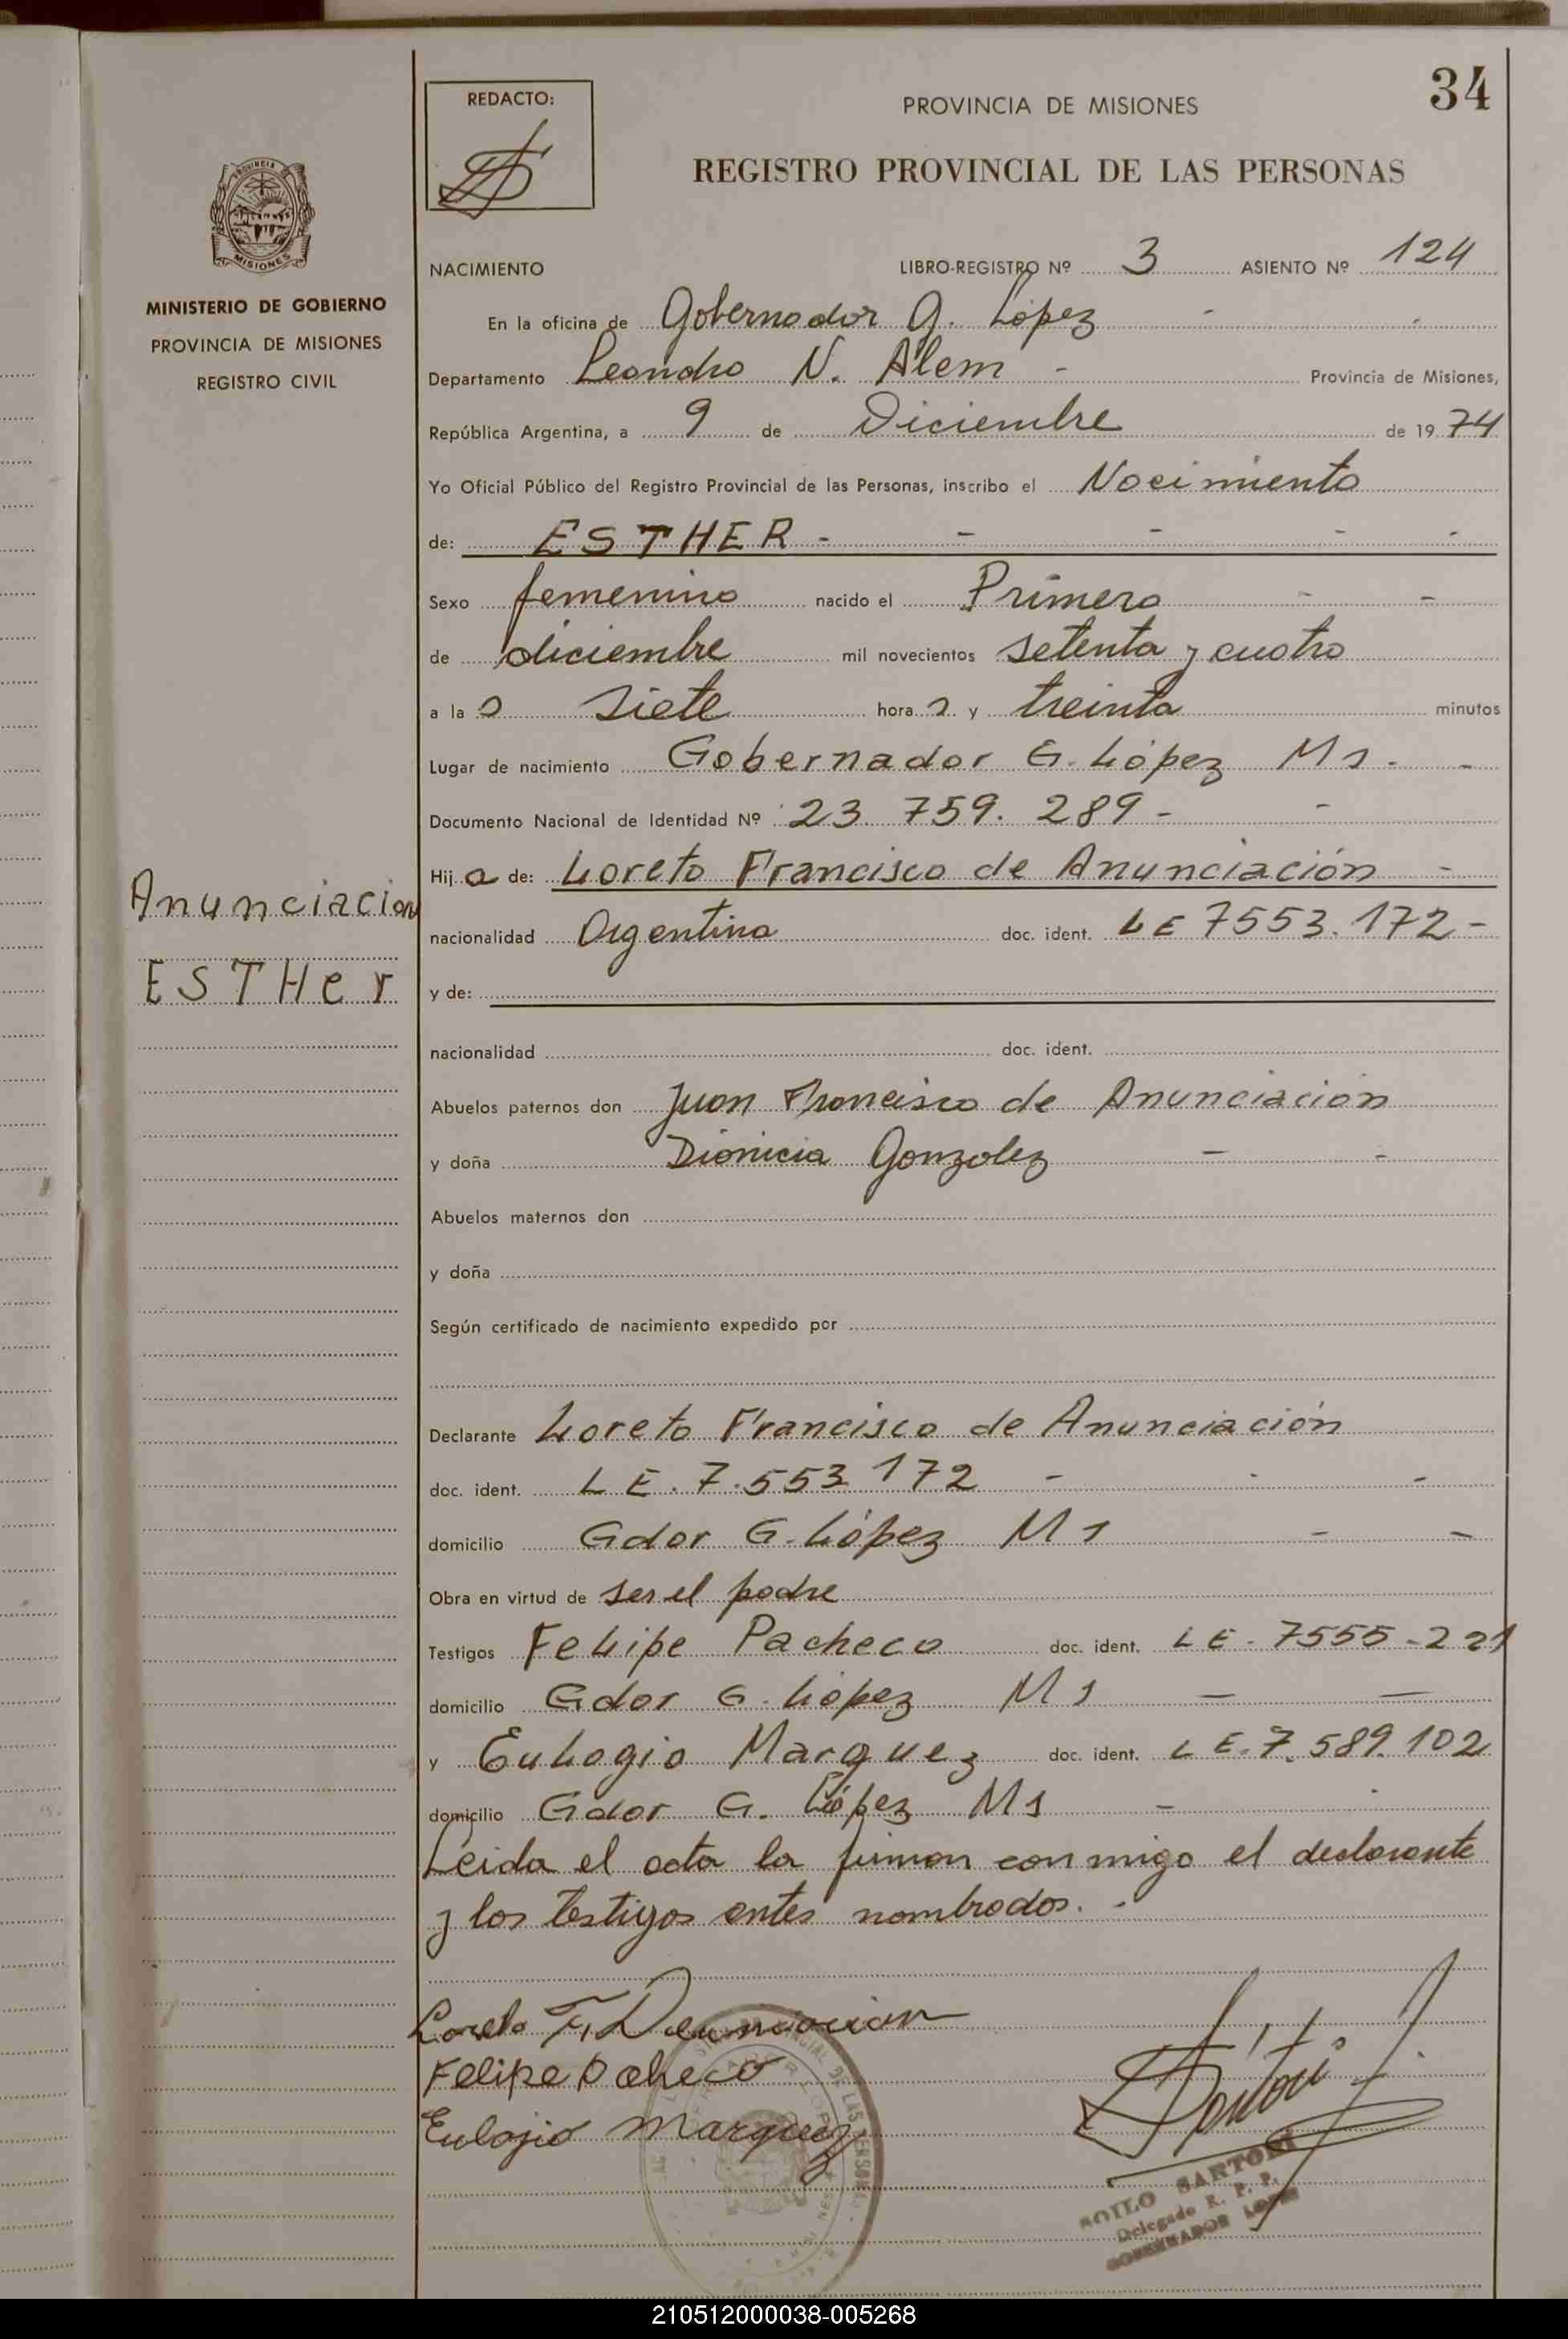 34
REDACTO:
PROVINCIA DE MISIONES
REGISTRO PROVINCIAL DE LAS PERSONAS
PROVINCIA
MISIONES
MINISTERIO DE GOBIERNO
PROVINCIA DE MISIONES
REGISTRO CIVIL
NACIMIENTO LIBRO-REGISTRO Nº 3 ASIENTO Nº 124
En la oficina de Gobernador G. López - -
Departamento Leandro N. Alem - Provincia de Misiones,
República Argentina, a 9 de Diciembre de 19 74
Yo Oficial Público del Registro Provincial de las Personas, inscribo el Nacimiento
de: ESTHER - - - - -
Sexo femenino nacido el Primero - -
de diciembre mil novecientos setenta y cuatro
a la s siete hora s y treinta minutos
Lugar de nacimiento Gobernador G. López Ms. -
Documento Nacional de Identidad Nº 23. 759. 289 - -
Hij a de: Loreto Francisco de Anunciación -
Anunciacion
nacionalidad Argentina doc. ident. LE 7553.172 -
ESTHer
y de:
nacionalidad doc. ident.
Abuelos paternos don Juan Francisco de Anunciación
y doña Dionicia Gonzalez - -
Abuelos maternos don
y doña
Según certificado de nacimiento expedido por
Declarante Loreto Francisco de Anunciación
doc. ident. L E. 7.553 172 - - -
domicilio Gdor G. López Ms - -
Obra en virtud de ser el padre
Testigos Felipe Pacheco doc. ident. LE - 7555 - 221
domicilio Gdor G. López Ms - -
y Eulogio Marquez doc. ident. L E. 7. 589. 102
domicilio Gdor G. López Ms - -
Leida el acta la firman conmigo el declarante
y los testigos antes nombrados. -
Loreto F, D Anunciacion
Felipe Paheco
Eulojio Marquez
SOILO SARTORI
Delegado R. P. P.
GOBERNADOR LOPEZ
210512000038-005268